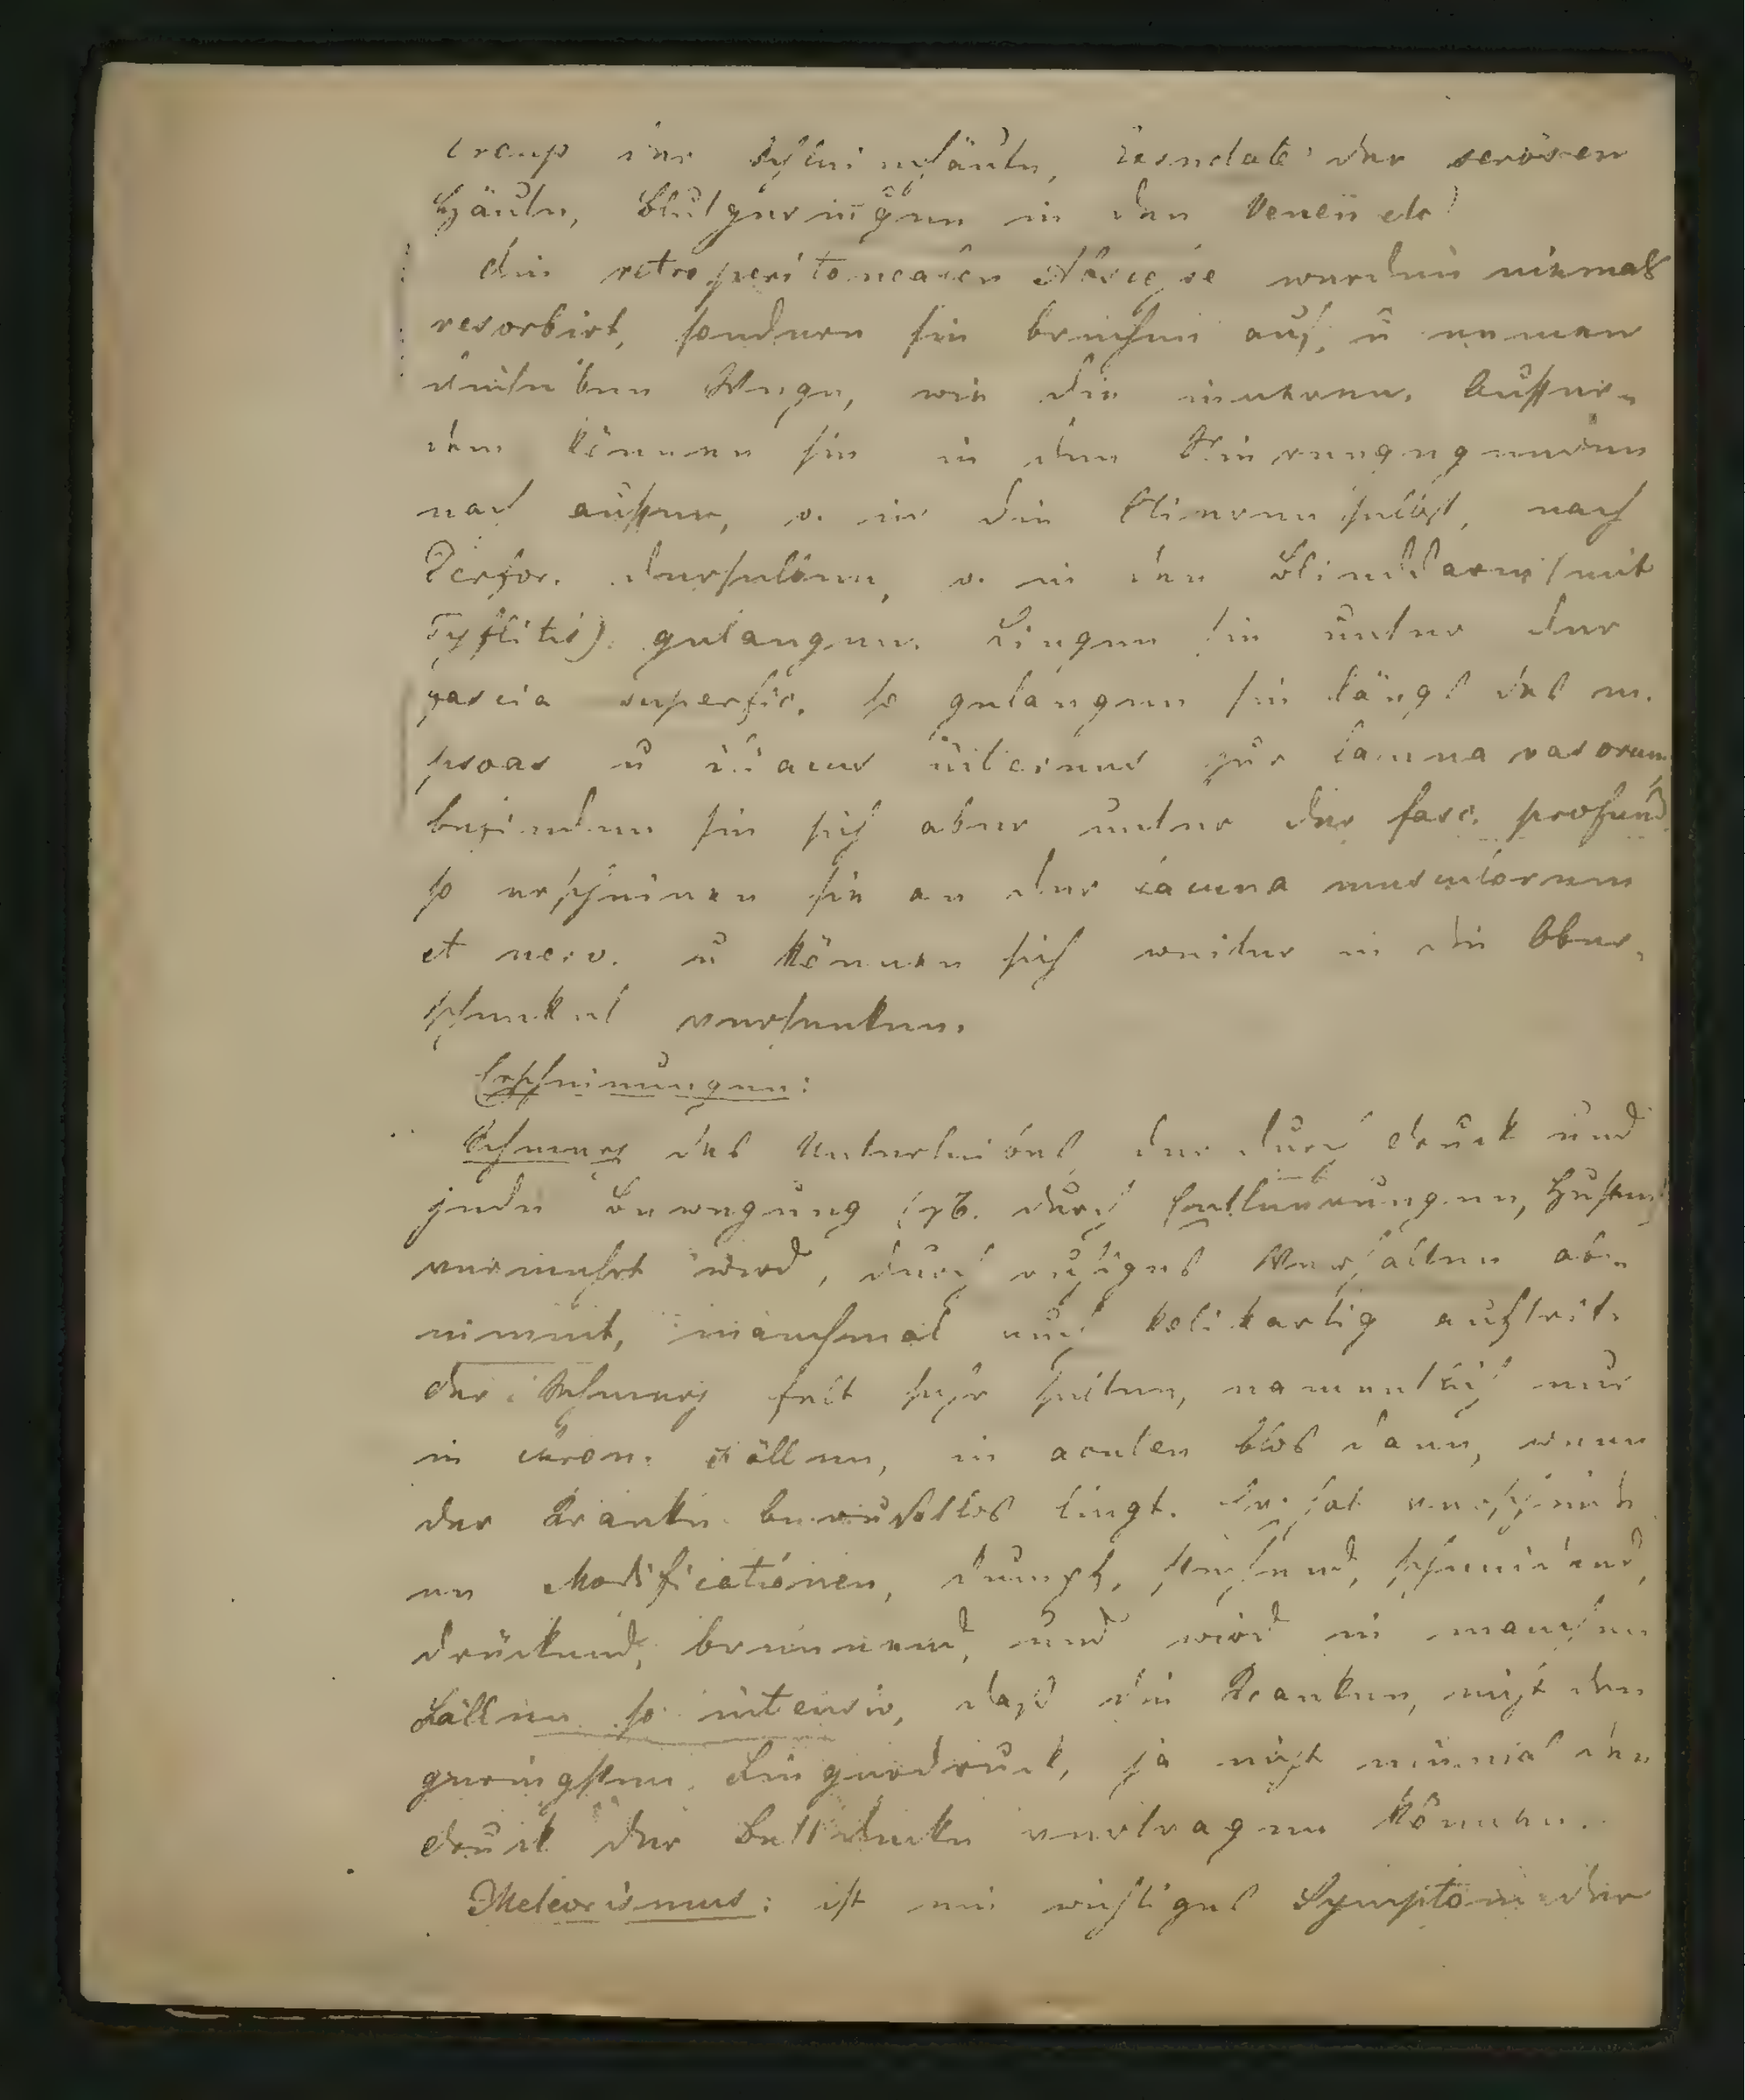 croup der Schleimhäute, Exsudate der serösen
Häute, Blutgerinngen in den Venen etc)
Die retroperitonealen Abscesse werden niemals
resorbirt, sondern sie brechen auf, u nemen
dieselben Wege, wie die inneren. Ausser-
dem können sie in den Nierengegenden
nach aussen, o. in die Nieren selbst, nach
Perfor. derselben, o. in den Blinddarm (mit
Tyflitis) gelangen. Liegen sie unter der
Fascia superfic. so gelangen sie längs des m.
psoas u iliacus internus zur Lacuna vasorum
befinden sie sich aber unter der fasc. profund.
so erscheinen sie an der Lacuna musculorum
et nerv. u können sich weiter in die Ober-
schenkel versenken.
Erscheinungen:
Schmerz des Unterleibes, der durch Druck und
jede Bewegung (zB. durch Entleerungen, Husten)
vermehrt wird, durch ruhiges Verhalten ab-
nimmt, manchmal auch kolikartig auftrit.
Der Schmerz felt sehr selten, namentlich nur
in chron. Fällen, in acuten blos dann, wenn
der Kranke bewustlos liegt. Er hat verschied
en Modificationen, dumpf, stechend, schneidend,
drückend, brennend, und wird in manchen
Fällen so intensiv, dass die Kranken, nicht den
geringsten Fingerdruck, ja nicht einmal den
Druck der Bettdecke vertragen können.
Meteorismus: ist ein wichtiges Symptom der